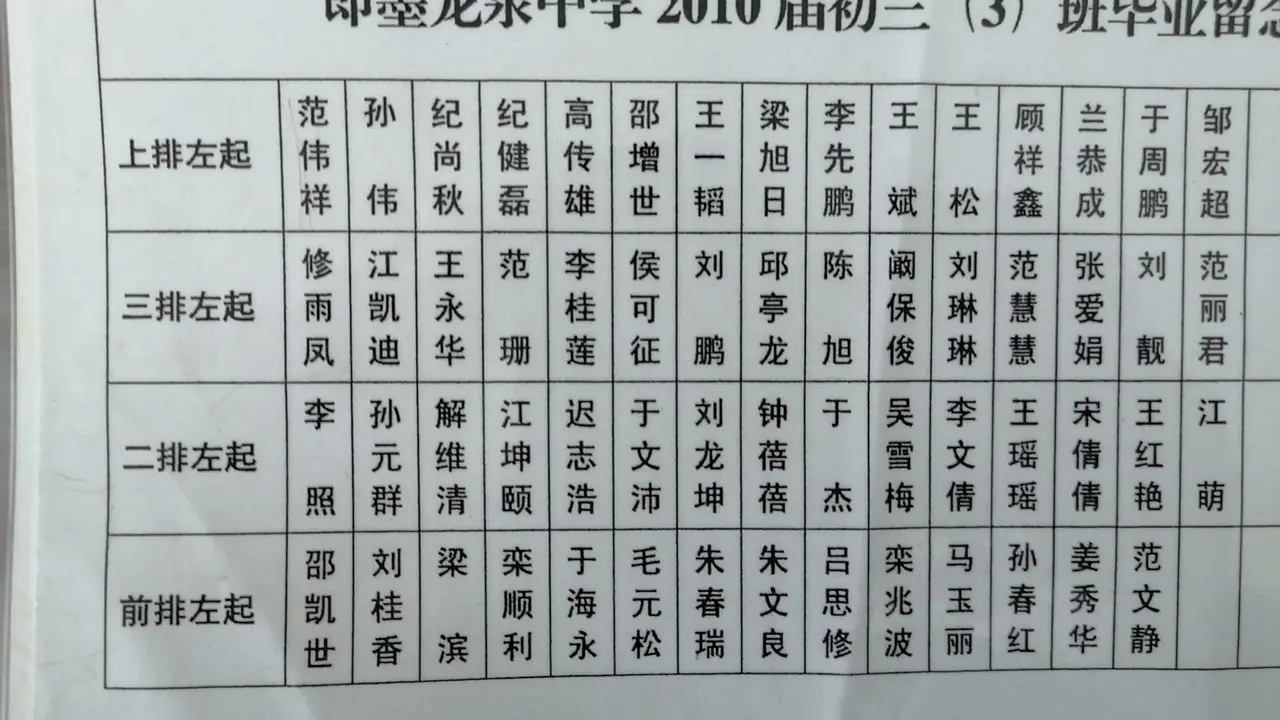 即墨龙泉中学2010届初三（3）班毕业留念
上排左起 范伟祥 孙伟 纪尚秋 纪健磊 高传雄 邵增世 王一韬 梁旭日 李先鹏 王斌 王松 顾祥鑫 兰恭成 于周鹏 邹宏超
三排左起 修雨凤 江凯迪 王永华 范珊 李桂莲 侯可征 刘鹏 邱亭龙 陈旭 阚保俊 刘琳琳 范慧慧 张爱娟 刘靓 范丽君
二排左起 李照 孙元群 解维清 江坤颐 迟志浩 于文沛 刘龙坤 钟蓓蓓 于杰 吴雪梅 李文倩 王瑶瑶 宋倩倩 王红艳 江萌
前排左起 邵凯世 刘桂香 梁滨 栾顺利 于海永 毛元松 朱春瑞 朱文良 吕思修 栾兆波 马玉丽 孙春红 姜秀华 范文静